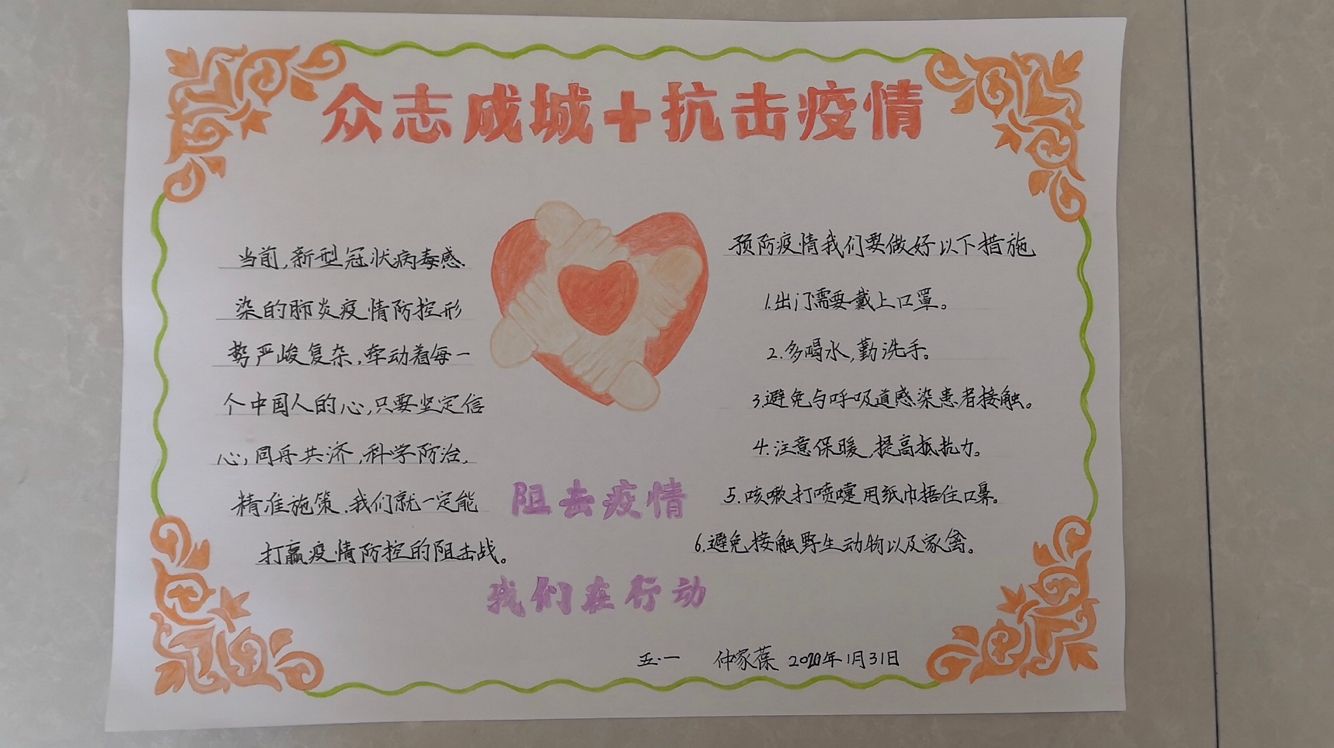 众志成城+抗击疫情
当前,新型冠状病毒感
染的肺炎疫情防控形
势严峻复杂,牵动着每一
个中国人的心,只要坚定信
心,同舟共济,科学防治,
精准施策,我们就一定能
打赢疫情防控的阻击战。
预防疫情我们要做好以下措施
1.出门需要戴上口罩。
2.多喝水,勤洗手。
3.避免与呼吸道感染患者接触。
4.注意保暖,提高抵抗力。
5.咳嗽打喷嚏用纸巾捂住口鼻。
6.避免接触野生动物以及家禽。
阻击疫情
我们在行动
五·一 仲家葆 2020年1月31日